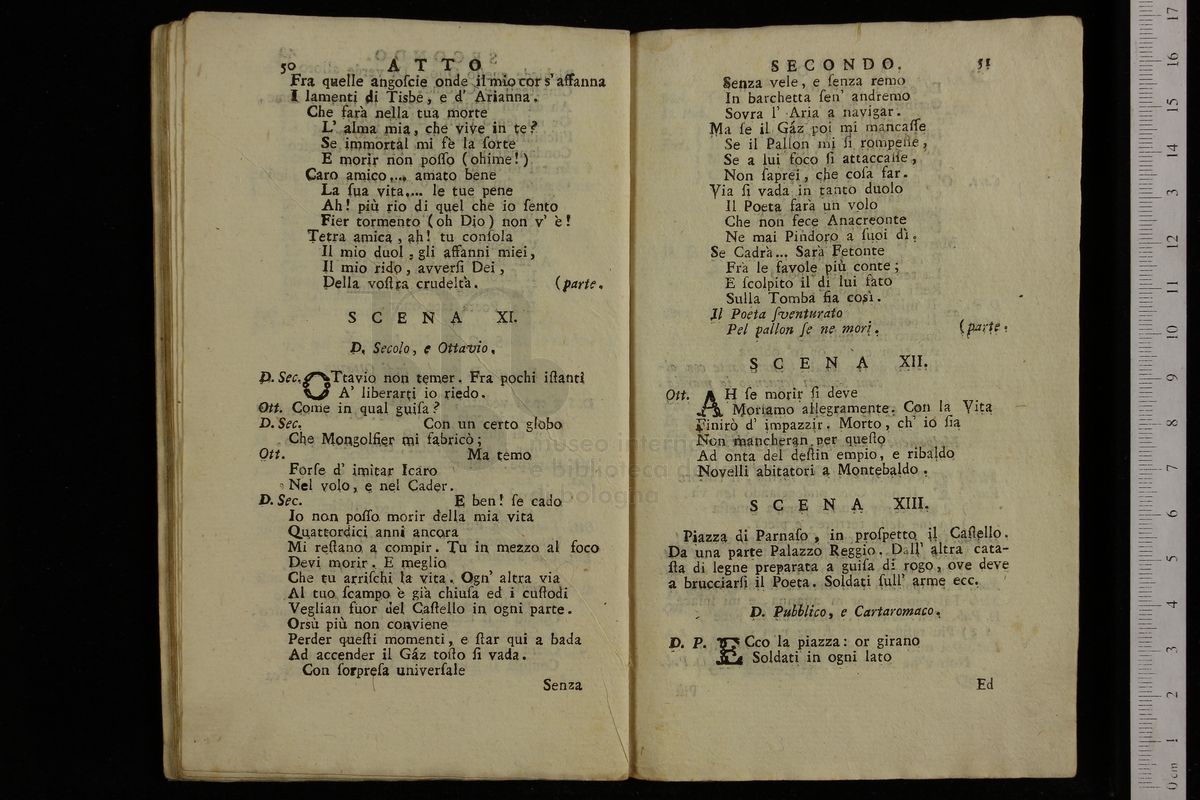 50 ATTO
Fra quelle angoſcie onde il mio cor s' affanna
I lamenti di Tisbe, e d' Arianna.
Che farà nella tua morte
L' alma mia, che vive in te?
Se immortal mi fè la ſorte
E morir non poſſo (ohime!)
Caro amico.... amato bene
La ſua vita.... le tue pene
Ah! più rio di quel che io ſento
Fier tormento (oh Dio) non v' è!
Tetra amica, ah! tu conſola
Il mio duol, gli affanni miei,
Il mio rido, avverſi Dei,
Della voſtra crudeltà. (parte.
SCENA XI.
D. Secolo, e Ottavio.
D. Sec. OTtavio non temer. Fra pochi iſtanti
A' liberarti io riedo.
Ott. Come in qual guiſa?
D. Sec. Con un certo globo
Che Mongolfier mi fabricò;
Ott. Ma temo
Forſe d' imitar Icaro
Nel volo, e nel Cader.
D. Sec. E ben! ſe cado
Io non poſſo morir della mia vita
Quattordici anni ancora
Mi reſtano a compir. Tu in mezzo al foco
Devi morir. E meglio
Che tu arriſchi la vita. Ogn' altra via
Al tuo ſcampo è già chiuſa ed i cuſtodi
Veglian fuor del Caſtello in ogni parte.
Orsù più non conviene
Perder queſti momenti, e ſtar qui a bada
Ad accender il Gáz toſto ſi vada.
Con ſorpreſa univerſale
Senza
SECONDO. 51
Senza vele, e ſenza remo
In barchetta ſen' andremo
Sovra l' Aria a navigar.
Ma ſe il Gáz poi mi mancaſſe
Se il Pallon mi ſi rompeſſe,
Se a lui foco ſi attaccaſſe,
Non ſaprei, che coſa far.
Via ſi vada in tanto duolo
Il Poeta farà un volo
Che non fece Anacreonte
Ne mai Pindoro a ſuoi dì.
Se Cadrà... Sarà Fetonte
Frà le favole più conte;
E ſcolpito il di lui fato
Sulla Tomba fia così.
Il Poeta ſventurato
Pel pallon ſe ne morì. (parte.
SCENA XII.
Ott. AH ſe morir ſi deve
Moriamo allegramente. Con la Vita
Finirò d' impazzir. Morto, ch' io ſia
Non mancheran per queſto
Ad onta del deſtin empio, e ribaldo
Novelli abitatori a Montebaldo.
SCENA XIII.
Piazza di Parnaſo, in proſpetto il Caſtello.
Da una parte Palazzo Reggio. Dall' altra cata-
ſta di legne preparata a guiſa di rogo, ove deve
a brucciarſi il Poeta. Soldati ſull' arme ecc.
D. Pubblico, e Cartaromaco.
D. P. ECco la piazza: or girano
Soldati in ogni lato
Ed
museo internazionale
e biblioteca della
bologna